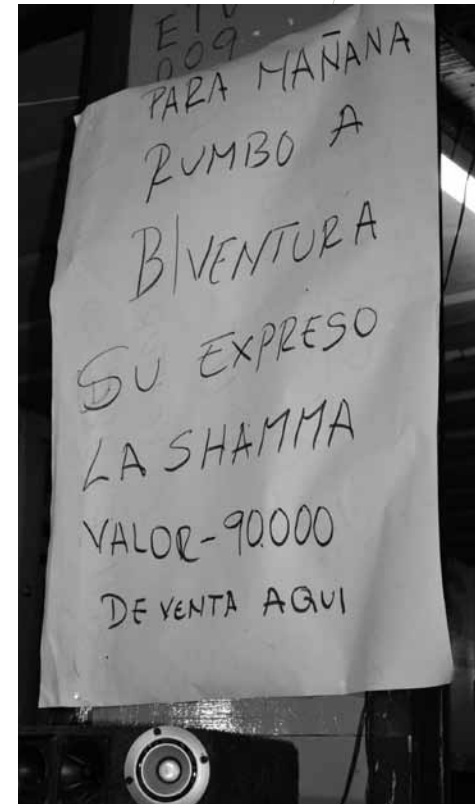 ETV
009
PARA MAÑANA
RUMBO A
B/VENTURA
SU EXPRESO
LA SHAMMA
VALOR-90.000
DE VENTA AQUI